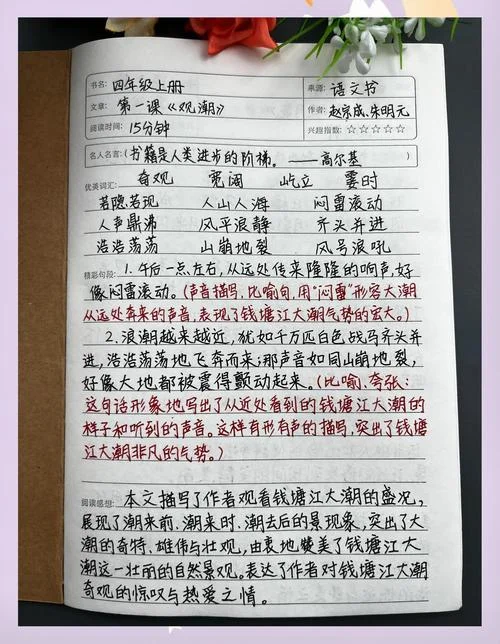 书名: 四年级上册 来源: 语文书
文章: 第一课《观潮》 作者: 赵宗成、朱明元
阅读时间: 15分钟 兴趣指数: ☆☆☆☆☆
名人名言: (书籍是人类进步的阶梯。——高尔基)
奇观 宽阔 屹立 霎时
优美词汇:
若隐若现 人山人海 闷雷滚动
人声鼎沸 风平浪静 齐头并进
浩浩荡荡 山崩地裂 风号浪吼
精彩句段: 1.午后一点左右,从远处传来隆隆的响声,好
像闷雷滚动。(声音描写,比喻句,用“闷雷”形容大潮
从远处奔来的声音,表现了钱塘江大潮气势的宏大。)
2.浪潮越来越近,犹如千万匹白色战马齐头并
进,浩浩荡荡地飞奔而来;那声音如同山崩地裂,
好像大地都被震得颤动起来。(比喻、夸张:
这句话形象地写出了从近处看到的钱塘江大潮的
样子和听到的声音。这样有形有声的描写,突出了钱塘
江大潮非凡的气势。)
阅读感想: 本文描写了作者观看钱塘江大潮的盛况,
展现了潮来前、潮来时、潮去后的景现象,突出了大
潮的奇特、雄伟与壮观,由衷地赞美了钱塘江大
潮这一壮丽的自然景观。表达了作者对钱塘江大潮
奇观的惊叹与热爱之情。